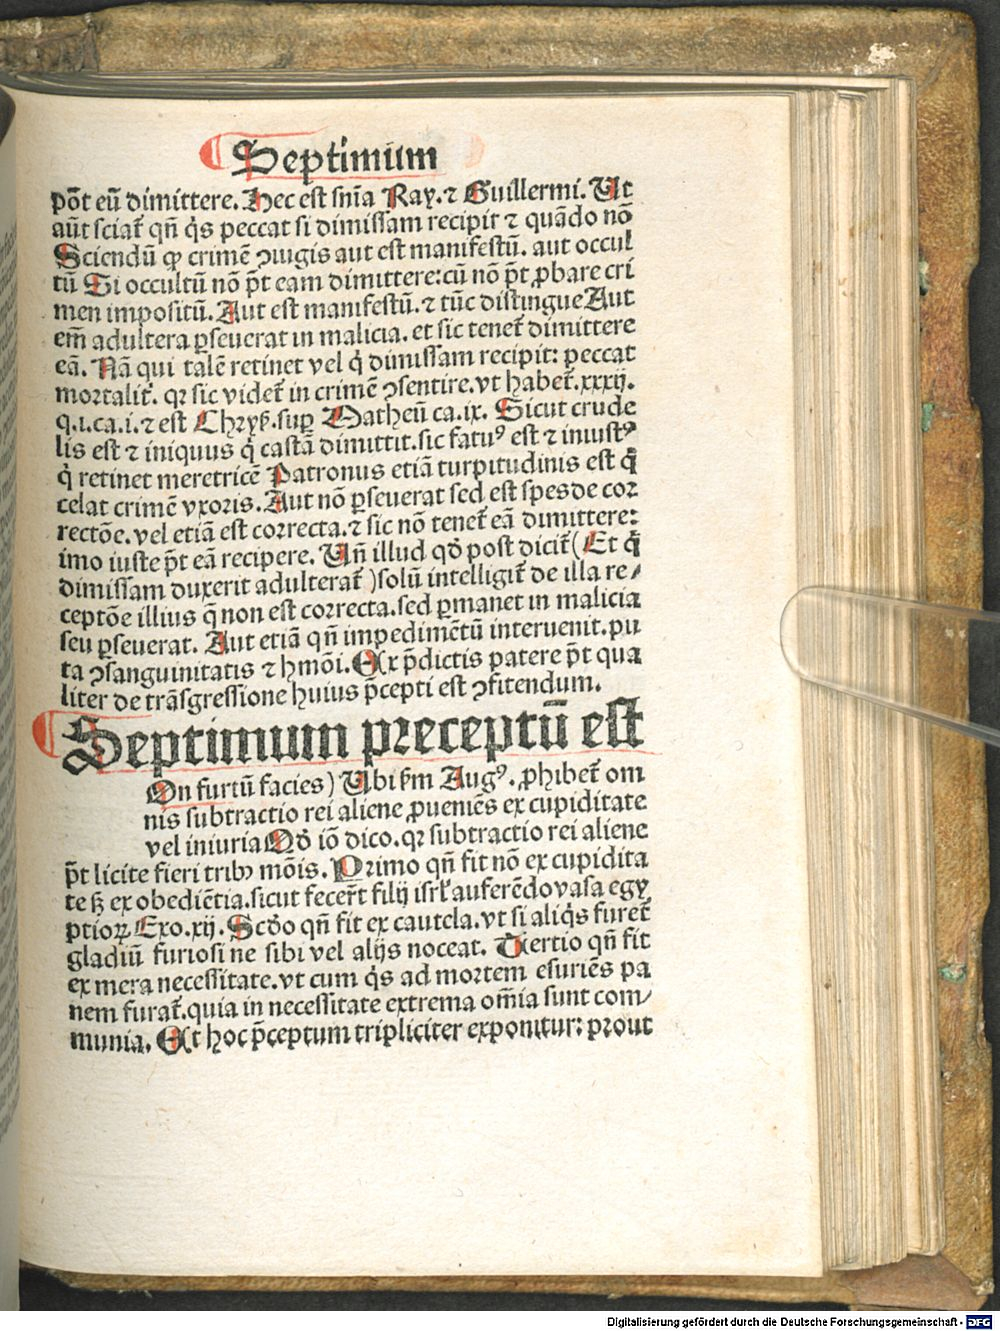 Septimum
põt eũ dimittere. Hec est snĩa Ray. ⁊ Guillermi. Ut
aũt sciat᷑ qñ q̇s peccat si dimissam recipit ⁊ quãdo nõ
Sciendũ ꝙ crimẽ ꝯiugis aut est manifestũ. aut occul
tũ Si occultũ nõ p̃t eam dimittere: cũ nõ p̃t ꝓbare cri
men impositũ. Aut est manifestũ. ⁊ tũc distingue Aut
em̃ adultera ꝑseuerat in malicia. et sic tenet᷑ dimittere
eã. Nã qui talẽ retinet vel q̇ dimissam recipit: peccat
mortalit᷑. qꝛ sic videt᷑ in crimẽ ꝯsentire. vt habet᷑. xxxij.
q. i. ca. i. ⁊ est Chrẏß. suꝑ Matheũ ca. ix. Sicut crude
lis est ⁊ iniquus q̇ castã dimittit. sic fatuꝰ est ⁊ iniustꝰ
q̇ retinet meretricẽ Patronus etiã turpitudinis est q̇
celat crimẽ vxoris. Aut nõ ꝑseuerat sed est spes de cor
rectõe. vel etiã est correcta. ⁊ sic nõ tenet᷑ eã dimittere:
imo iuste p̃t eã recipere. Uñ illud qđ post dicit᷑ (Et q̇
dimissam duxerit adulterat᷑) solũ intelligit᷑ de illa re/
ceptõe illius q̃ non est correcta. sed ꝑmanet in malicia
seu ꝑseuerat. Aut etiã qñ impedimẽtũ interuenit. pu
ta ꝯsanguinitatis ⁊ hmõi. Ex p̃dictis patere p̃t qua
liter de trãsgressione huius p̃cepti est ꝯfitendum.
Septimum preceptũ est
On furtũ facies) Ubi ẜm Augꝰ. ꝓhibet᷑ om
nis subtractio rei aliene ꝓueniẽs ex cupiditate
vel iniuria Qđ iõ dico. qꝛ subtractio rei aliene
p̃t licite fieri tribꝫ mõis. Primo qñ fit nõ ex cupidita
te ß ex obediẽtia. sicut fecer̃t filij isrl̃ auferẽdo vasa egẏ
ptioꝝ Exo. xij. Scđo qñ fit ex cautela. vt si aliq̇s furet᷑
gladiũ furiosi ne sibi vel alijs noceat. Tertio qñ fit
ex mera necessitate. vt cum q̇s ad mortem esuriẽs pa
nem furat᷑. quia in necessitate extrema om̃ia sunt com/
munia. Et hoc p̃ceptum tripliciter exponitur: prout
Digitalisierung gefördert durch die Deutsche Forschungsgemeinschaft - DFG